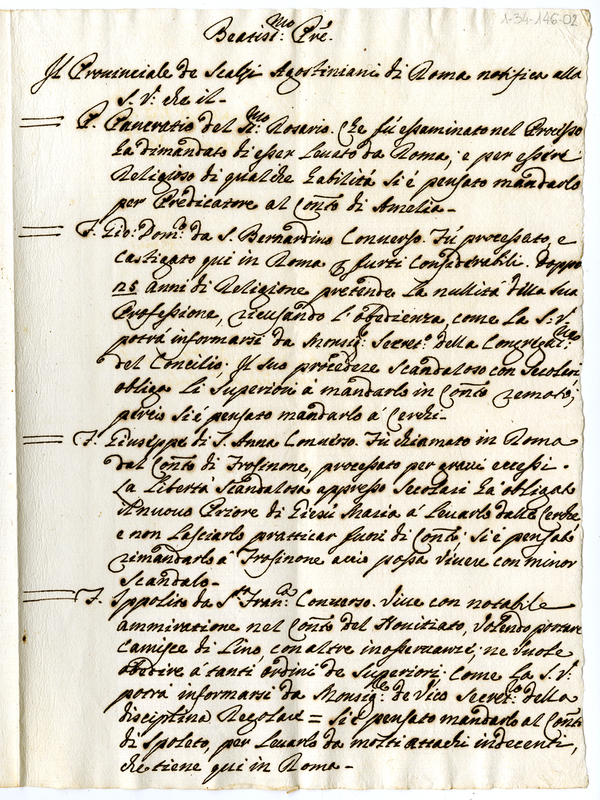 1-34-146-02
Beatiss:mo Pre.
Il Provinciale de Scalzi Agostiniani di Roma notifica alla
S. V: che il -
P. Pancratio del SS:mo Rosario. Che fú essaminato nel Processo
ha dimandato di esser levato da Roma; e per essere
Religioso di qualche habilitá si é pensato mandarlo
per Predicatore al Conto di Amelia -
F. Gio: Dom:co da S. Bernardino Converso. Fú processato, e
castigato qui in Roma p furti considerabili. Doppo
25 anni di Religione pretende la nullitá della sua
Professione, ricusando l'obedienza, come la S: V:
potrá informarsi da Monsig:r Secret:o della Congregat:ne
del Concilio. Il suo procedere scandaloso con Secolari
obliga li Superiori á mandarlo in Conto remoto;
perció si é pensato mandarlo á Cerchi -
F. Giuseppe di S. Anna Converso. Fú chiamato in Roma
dal Conto di Frosinone, processato per gravi eccessi.
La libertá scandalosa appresso Secolari há obligato
il nuovo Priore di Giesú Maria á levarlo dalle Cerche
e non lasciarlo pratticar fuori di Conto: si é pensato
rimandarlo á Frosinone acció possa vivere con minor
scandalo -
F. Ippolito da S:ta Fran:ca Converso. Vive con notabile
ammiratione nel Conto del Novitiato, volendo portare
camisce di lino, con altre inosservanze, ne vuole
obedire á tanti ordini de Superiori: Come la S. V:
potrá informarsi da Monsig:re de Vico Secret:o della
disciplina Regolare = si é pensato mandarlo al Conto
di Spoleto, per levarlo da molti attachi indecenti,
che tiene qui in Roma -